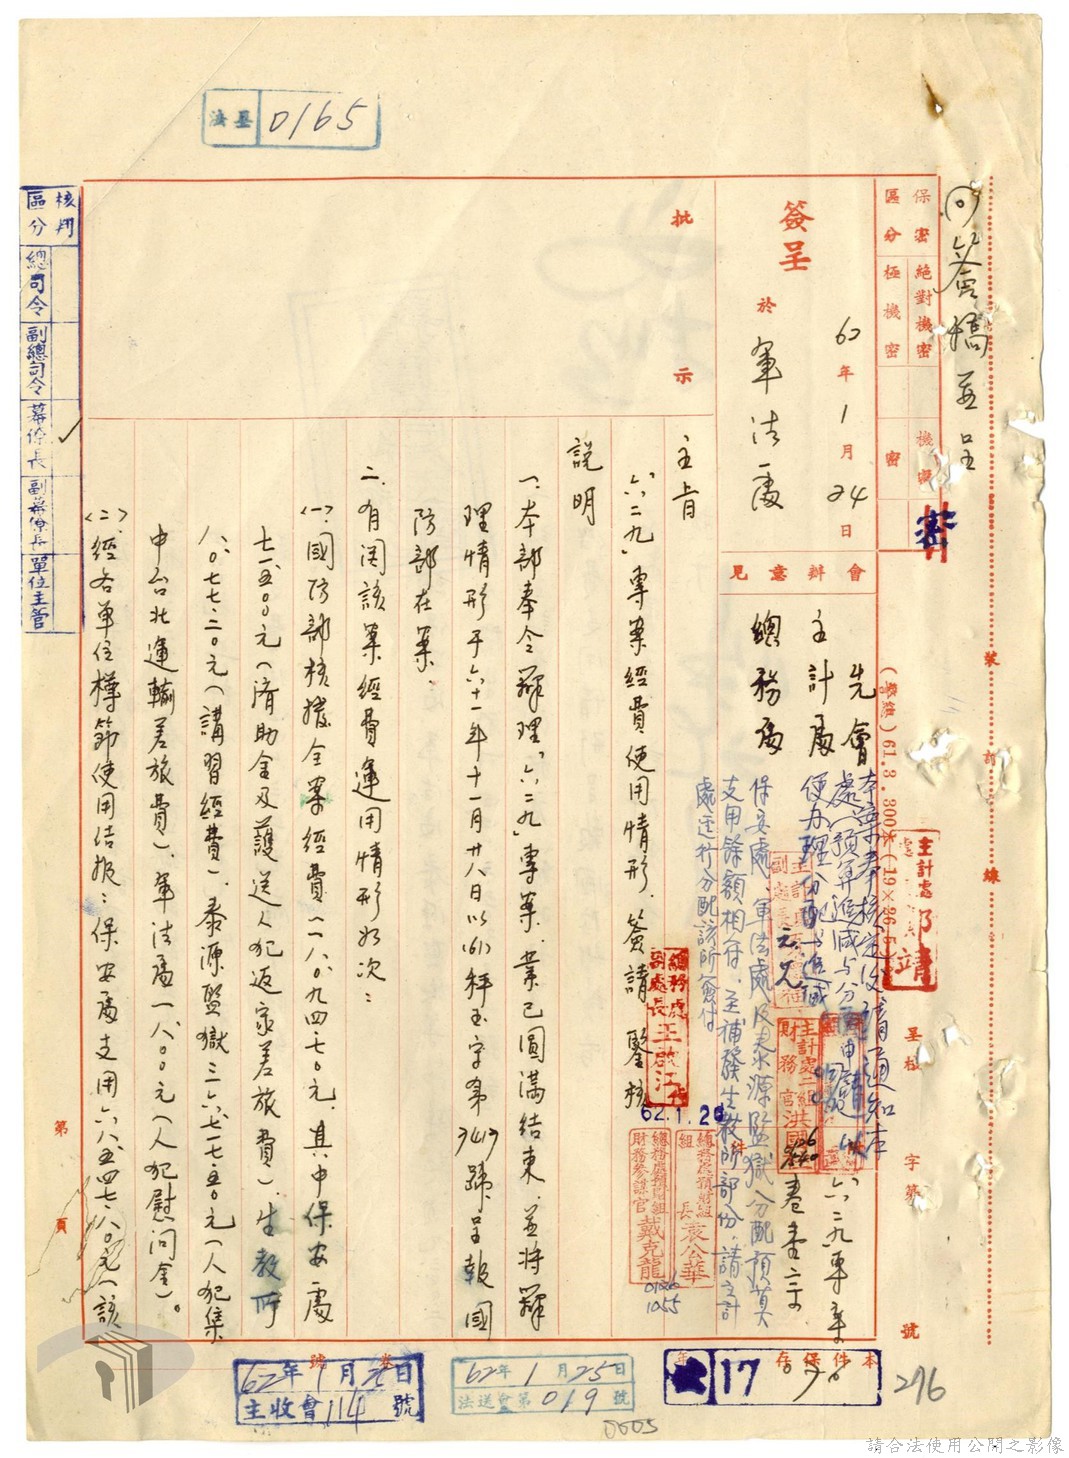 法墨 0165
核判區分
總司令
副總司令
幕僚長
副幕僚長
單位主管
同簽稿並呈
保密區分
絕對機密
極機密
機密
密
密
簽呈
於軍法處
62年1月24日
會辦意見
先會
主計處
總務處
批示
主旨
「六二九」專案經費使用情形,簽請 鑒核
說明
一、本部奉令辦理「六二九」專案,業已圓滿結束,並將辦
理情形于六十一年十一月廿八日以(61)秤玉字第7417號呈報國
防部在案。
二、有関該案經費運用情形如次:
(一)國防部核撥全案經費一一八、〇九四.七〇元,其中保安處
七一、五〇〇元(濟助金及護送人犯返家差旅費)、生教所
八、〇七七.二〇元(講習經費)、泰源監獄三六、七一七.五〇元(人犯集
中台北運輸差旅費)、軍法處一、八〇〇元(人犯慰問金)。
(二)經各單位樽節使用結報:保安處支用六八、五四七.八〇元(該
本案奉核定後請通知本
處(預算追減与分配申請)以
便办理分配追減
保安處、軍法處及泰源監獄分配預算
支用餘額相符,至補發生教所部份,請主計
處逕行分配該所簽付
六二九專案
主計處
處長
邵靖
總務處副處長王啟江
62.1.26
總務處預財組組長袁公華
總務處預財組財務參謀官戴克龍
0126
1055
主計處二組財務官洪國
裝訂線
(聯總)61.3.300本(19×26.5)
呈核
字第 號
第 頁
卷號
62年1月26日
主收會114號
62年1月25日
法送會第019號
本件保存 年
17
276
0005
請合法使用公開之影像